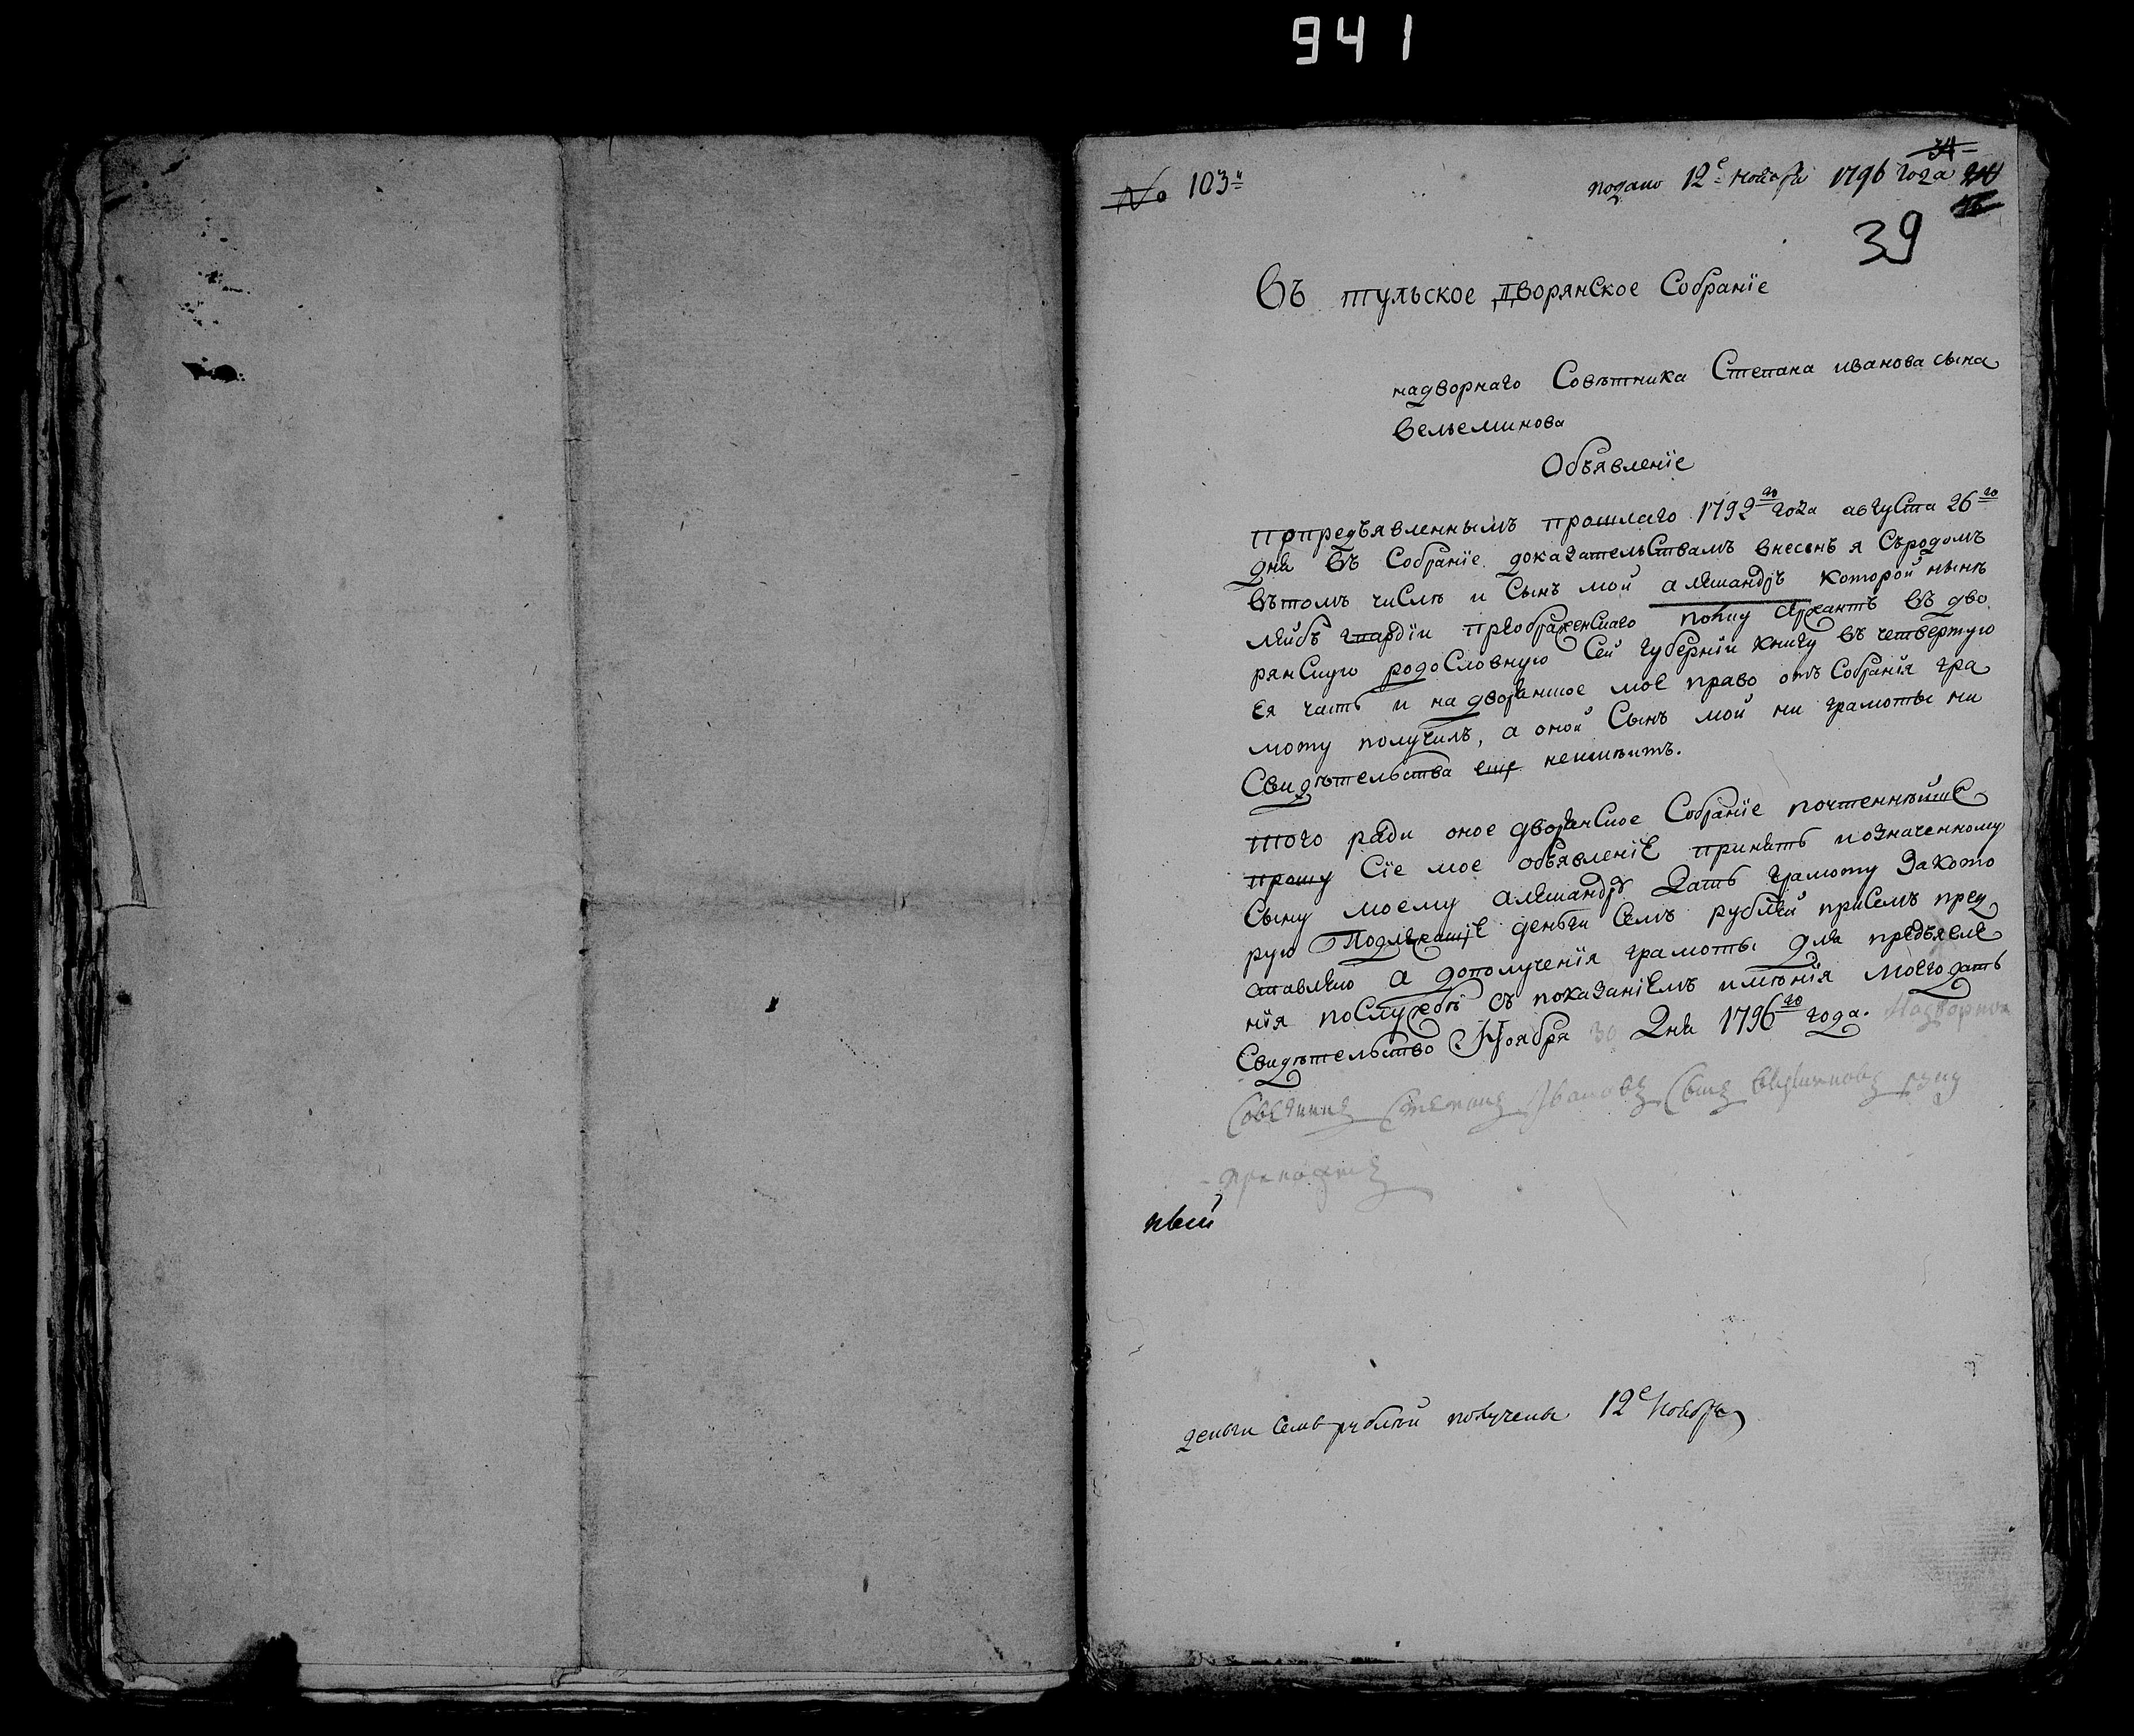 941
34
No 103
подано 12е ноября 1796 года
39
Въ тульское дворянское Собранїе
надворнаго Совѣтника Степана иванова сына
вельеминова
Объявленїе
попредъявленнымъ прошлаго 1792го года августа 26го
дня въ Собранїе доказательствамъ внесенъ я Съродомъ
вътомъ числѣ и Сынъ мой александръ которой нынѣ
лейбъ гвардїи преображенскаго полку сержантъ въ дво
рянскую родословную Сей губернїи книгу въ четвертую
ея часть и на дворянское мое право отъ Собранїя гра
моту получилъ, а оной Сынъ мой ни грамоты ни
Свидѣтельства еще неимѣитъ.
того ради оное дворянское Собранїе почтеннѣйше
прошу Сїе мое объявленїе принять иозначенному
Сыну моему александру дать грамоту закото
рую подлежащїе деньги семь рублей присемъ пред
ставляю а дополученїя грамоты для предъявле
нїя послужбѣ съ показанїемъ имѣнїя моего дать
Свидѣтельство Ноября 30 дня 1796го года. Надворной
Советникъ Степанъ Ивановъ Сынъ вельяминовъ руку
приложилъ
ный
деньги семь рублей получены 12е ноября